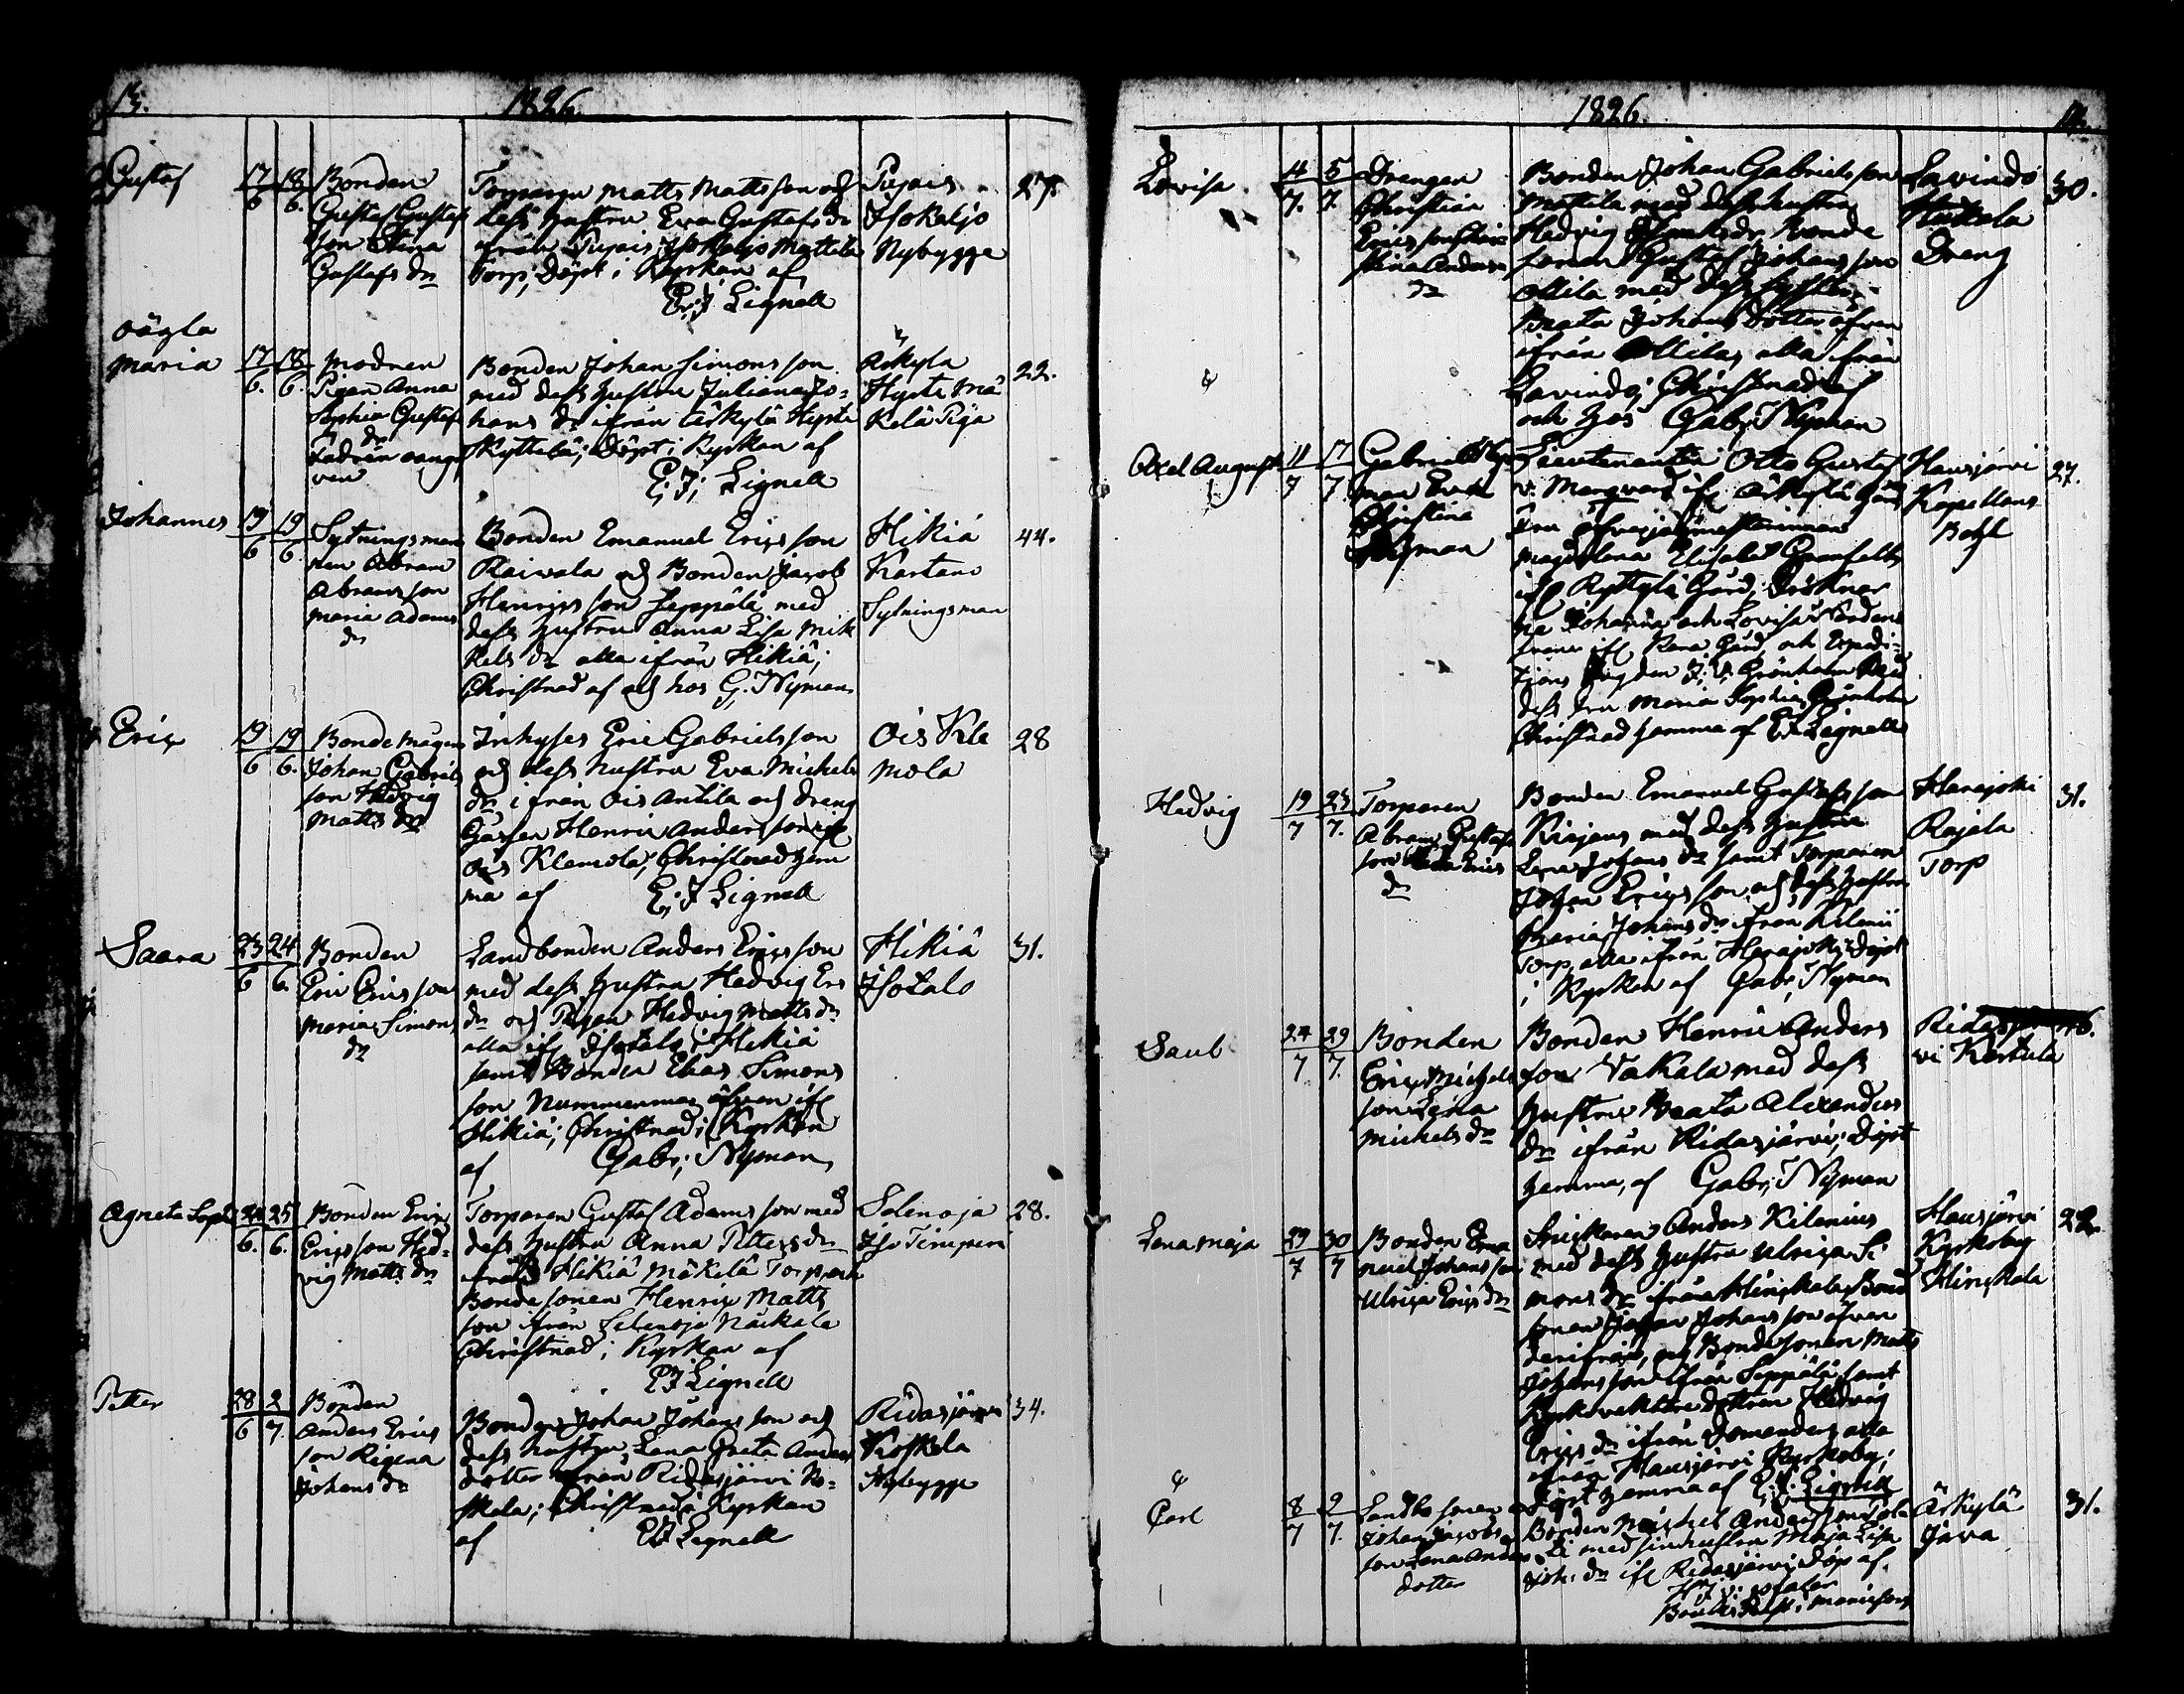 13.
1826.
Gustaf
17/6
18/6.
Bonden
Gustaf Gustaf
son Stina
Gustafs dr
Torparen Matts Mattsson och
dess hustru Eva Gustafs dr
ifrån Pujais Isokaljo Mattila
Torp; Döpt i Kyrkan af
E: J Lignell
Pujais
Isokaljo
Nybygge
27.
oägta
Maria
17/6.
18/6.
Modren
Pigan Anna
Sophia Gustafs
dr
Fadren oangif
ven
Bonden Johan Simonsson
med dess hustru Juliana Jo-
hans dr ifrån Erkylä Hyste
Kyttelä; Döpt i Kyrkan af
E; J; Lignell
Erkyla
Hyste Mä
Kelä Piga
22.
Johannes
19/6
19/6
Sytningsman
nen Abram
Abramsson
Maria Adams
dr
Bonden Emanuel Ericsson
Raiwala och Bonden Jacob
Henricsson Seppälä med
dess hustru Anna Lisa Mik
kels dr alla ifrån Hikiä;
Christnad af och hos G. Nyman
Hikiä
Kartano
Sytningsman
44.
Eric
19/6
19/6.
Bondemågen
Johan Gabriels
son Hedvig
Matts dr
Inhyses Eric Gabrielsson
och dess hustru Eva Michels
dr ifrån Ois Antila och Dreng
Gåssen Henric Andersson ifr
Ois Klemola; Christnad hem
ma af E; J Lignell
Ois Kle
mola
28
Saara
23/6
24/6.
Bonden
Eric Ericsson
Maria Simons
dr
Landbonden Anders Ericsson
med dess hustru Hedvig Ers
dr och Pigan Hedvig Matts dr
alla ifr Isotalo i Hikiä
samt Bonden Elias Simons
son Nummenmaa äfven ifr
Hikiä; Christnad i Kyrkan
af Gabr; Nyman
Hikiä
Isotalo
31.
Agneta Soph
24/6.
25/6.
Bonden Eric
Ericsson Hed-
vig Matts dr
Torparen Gustaf Adamsson med
dess hustru Anna Petters dr
ifrån Hikiä Mäkelä Torp, och
Bondesonen Henric Matts
son ifrån Selenoja Näckala
Christnad i Kyrkan af
E J Lignell
Selenoja
Iso Timperi
28.
Petter
28/6
2/7.
Bonden
Anders Erics
son Regena
Johans dr
Bonden Johan Johansson och
dess hustru Lena Greta Anders
dotter ifrån Ridasjärvi Ko-
skela; Christnad i Kyrkan
af E J Lignell
Ridasjärvi
Koskela
Nybygge
34.
1826.
14.
Lovisa
4/7.
5/7.
Drengen
Christian
Ericsson Chri
stina Anders
dr
Bonden Johan Gabrielsson
Mattila med dess hustru
Hedvig dr Bonde
sonen Gustaf Johansson
Ollila med dess syster
Beata Johans dotter äfven
ifrån Ollila, alla ifrån
Lavindo; Christnad af
och hos Gabr; Nyman
Lavindo
Huttala
Dreng
30.
Axel August
11/7
17/7
Gabriel Ny
man Eva
Christina
Nyman
Lieutenanten Otto Gustaf
v. Marqvard ifr Erkylä Gård
Fru
Magdalena Elisabet Granfelt
ifr Ryttylä Gård; Fröknar
na Johanna och Lovisa
ifr Gård, och Expedi-
tions Fogden J: V. Grönholm med
dess Fru Maria Sophia Grönholm
Christnad hemma af E J Lignell
Hausjärvi
Kapellans
Bohl
27.
Hedvig
19/7
23/7.
Torparen
Abram Gustafs
son Erics
dr
Bonden Emanuel Gustafsson
med dess hustru
Lena Johans dr samt Torparen
Johan Ericsson och dess hustru
Maria Johans dr ifrån Kilenii
Torp, alla ifrån Herajoki; Döpt
i Kyrkan af Gabr; Nyman
Herajoki
Rajala
Torp
31.
Saul
24/7
29/7.
Bonden
Eric Michels
son Lena
Michels dr
Bonden Henric Anders
son Vakala med dess
hustru Beata Alexanders
dr ifrån Ridasjärvi; Döpt
hemma, af Gabr; Nyman
Ridasjär
vi Kertula
Lena Maja
29/7
30/7
Bonden Ema
nuel Johansson
Ulrica Erics dr
Snickaren Anders Kilenius
med dess hustru Ulrica Si
mons dr ifrån Hinskala Bond
sonen Johan Johansson äfven
derifrån, och Bondesonen Matts
Johansson ifrån Seppälä samt
Kyrkovaktare dottren Hedvig
Erics dr ifrån Domanders alla
ifrån Hausjärvi Kyrkoby;
Döpt hemma af E; J. Lignell
Hausjärvi
Kyrkoby
Hinskala
22.
Carl
8/7
9/7.
Landbosonen
Johan Jacobs
son Lena Anders
dotter
Bonden Michel Andersson
med sin hustru Maja Lisa
Joh: dr ifr Ridasjärvi; Döp af
Erkylä
Java
31.